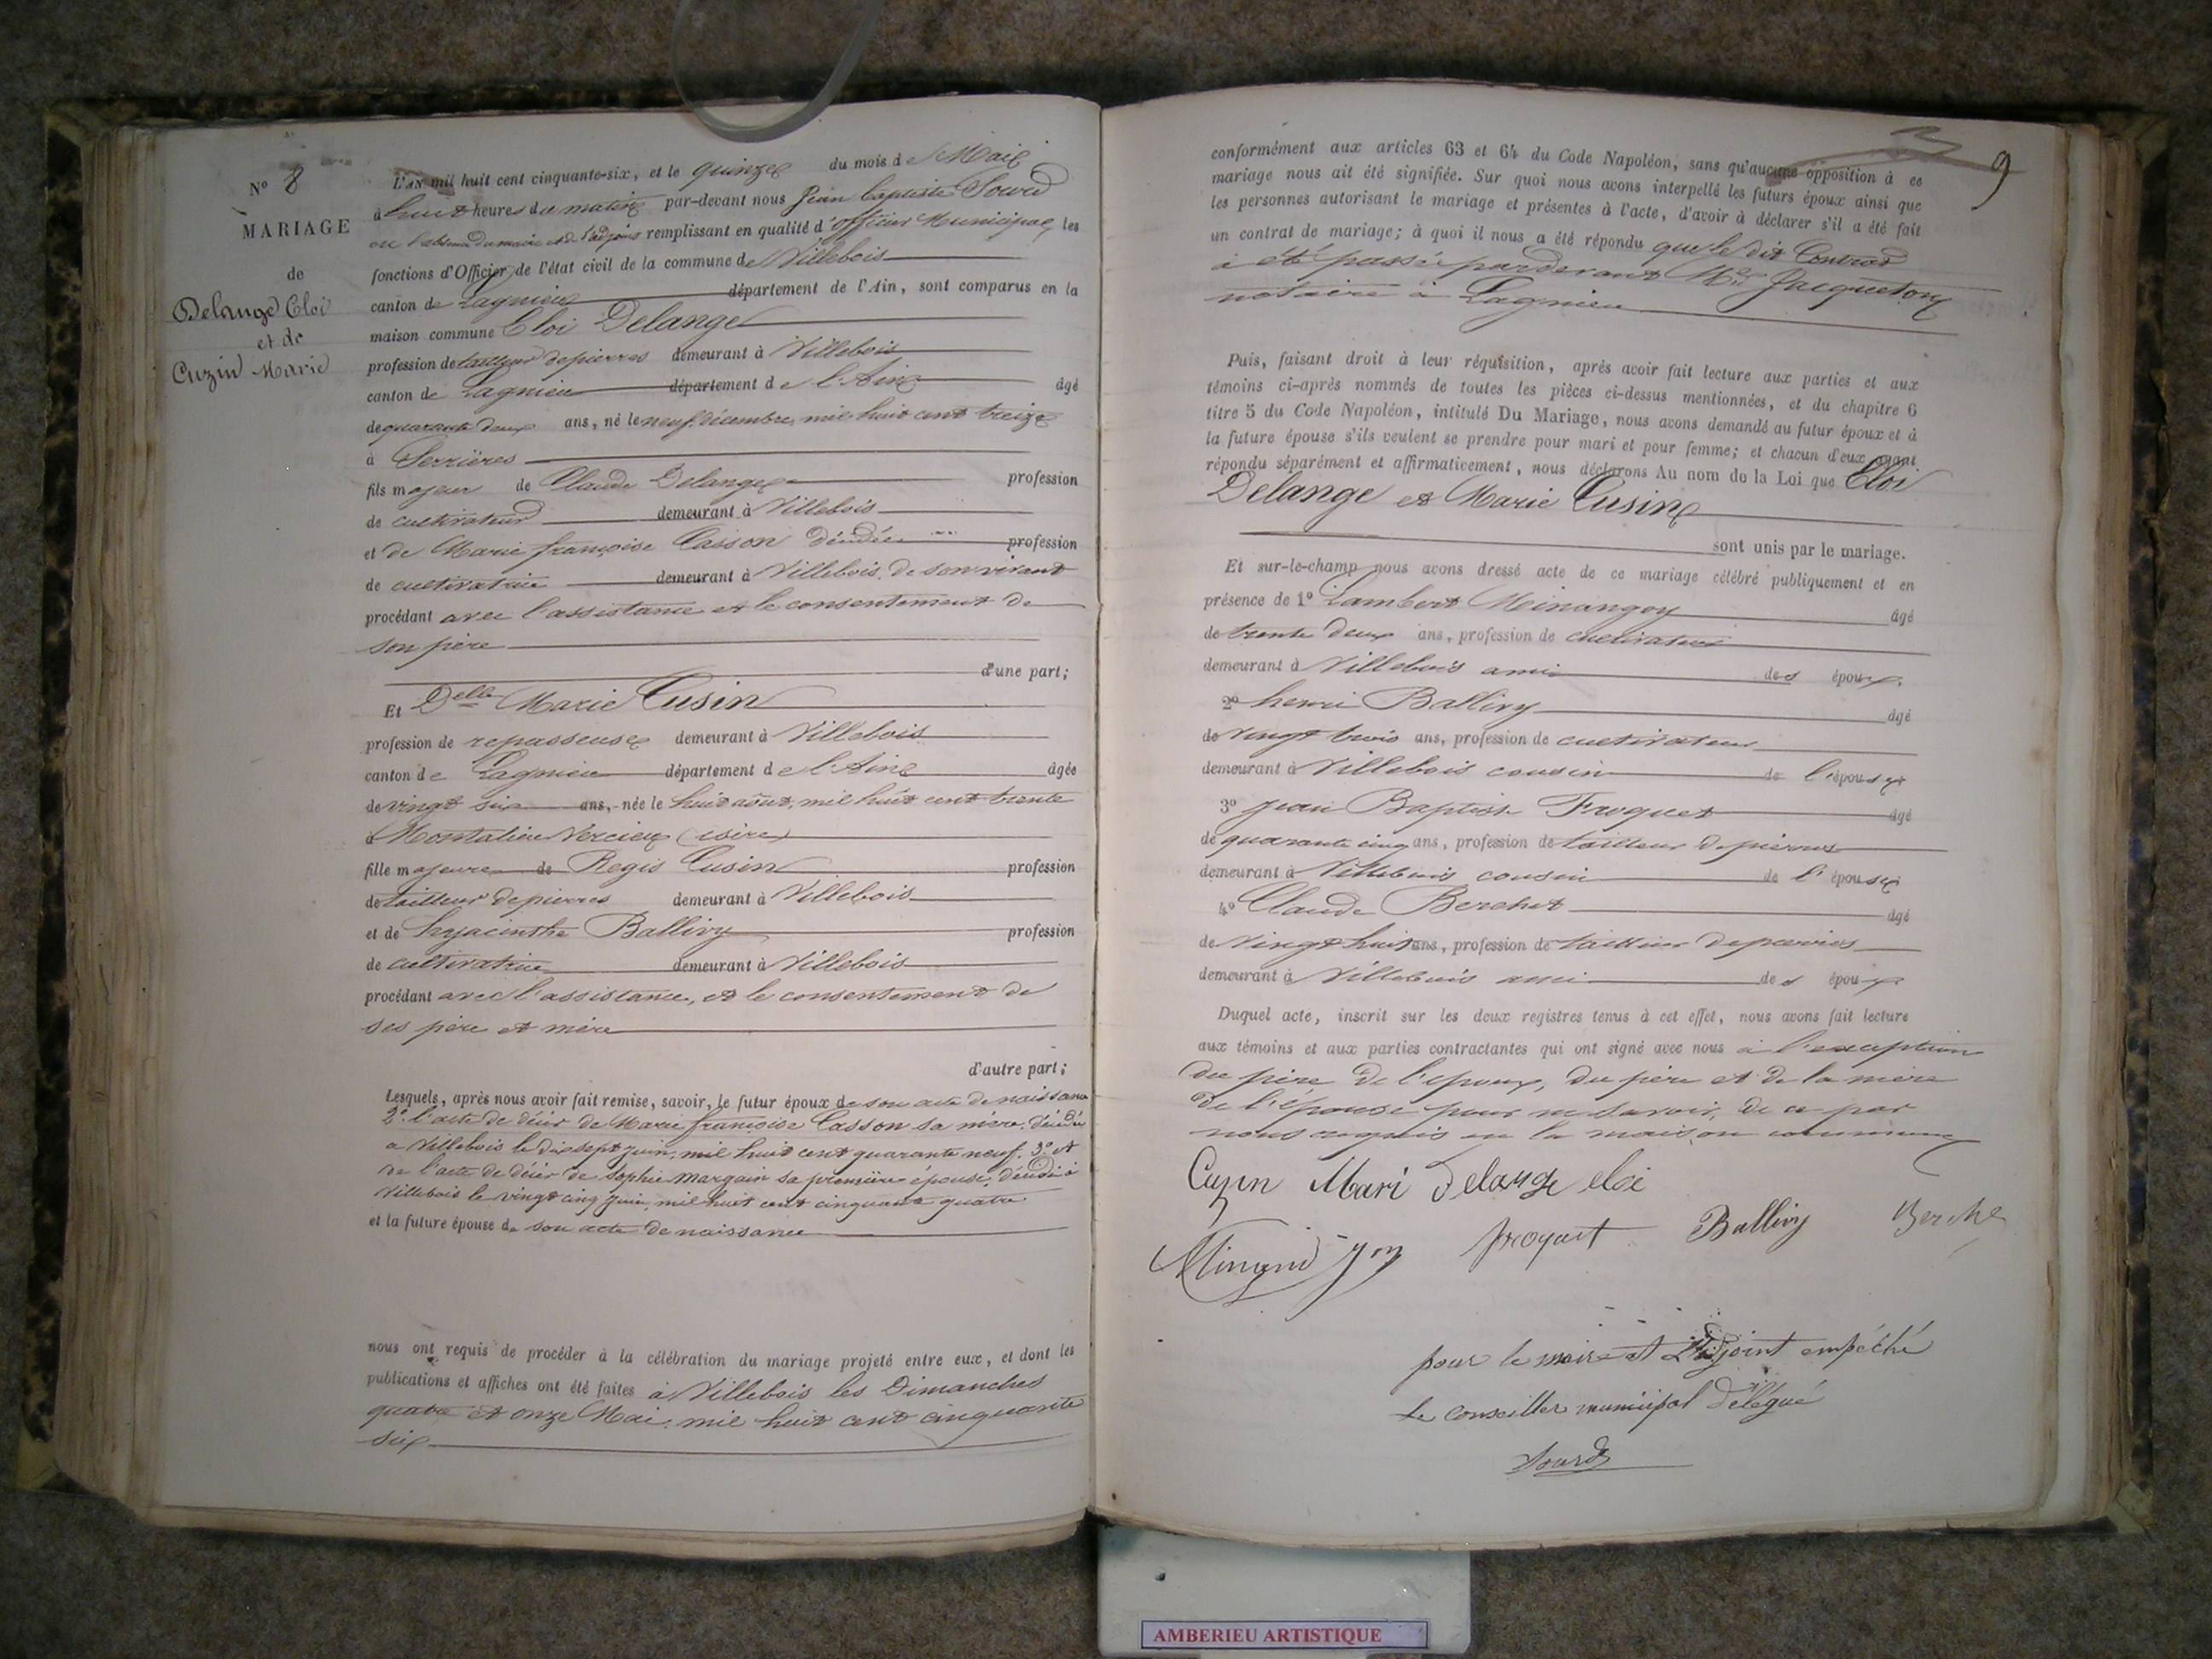 N° 8
MARIAGE
de
Delange Eloi
et de
Cuzin Marie
L'an mil huit cent cinquante-six, et le quinze du mois de Mai
à huit heures du matin par-devant nous Jean Baptiste Sourd
en l'absence du maire et de l'adjoint remplissant en qualité d'officier Municipal, les
fonctions d'Officier de l'état civil de la commune de Villebois
canton de Lagnieu département de l'Ain, sont comparus en la
maison commune Eloi Delange
profession de tailleur de pierres demeurant à Villebois
canton de Lagnieu département de l'Ain âgé
de quarante deux ans, né le neuf décembre, mil huit cent treize
à Serrières
fils majeur de Claude Delange profession
de cultivateur demeurant à Villebois
et de Marie françoise Casson décédée profession
de cultivatrice demeurant à Villebois, de son vivant
procédant avec l'assistance et le consentement de
son père
d'une part;
Et Delle Marie Cusin
profession de repasseuse demeurant à Villebois
canton de Lagnieu département de l'Ain âgée
de vingt six ans, née le huit août, mil huit cent trente
à Montalieu Vercieu (isère)
fille majeure de Regis Cusin profession
de tailleur de pierres demeurant à Villebois
et de hyacinthe Ballivy profession
de cultivatrice demeurant à Villebois
procédant avec l'assistance, et le consentement de
ses père et mère
d'autre part;
Lesquels, après nous avoir fait remise, savoir, le futur époux de son acte de naissance
2° l'acte de décès de Marie françoise Casson sa mère, décédée
a Villebois le dix sept juin, mil huit cent quarante neuf. 3° et
de l'acte de décès de Sophie Margain sa première épouse, décédée à
Villebois le vingt cinq juin, mil huit cent cinquante quatre
et la future épouse de son acte de naissance
nous ont requis de procéder à la célébration du mariage projeté entre eux, et dont les
publications et affiches ont été faites à Villebois les Dimanches
quatre et onze Mai, mil huit cent cinquante
six
9
conformément aux articles 63 et 64 du Code Napoléon, sans qu'aucune opposition à ce
mariage nous ait été signifiée. Sur quoi nous avons interpellé les futurs époux ainsi que
les personnes autorisant le mariage et présentes à l'acte, d'avoir à déclarer s'il a été fait
un contrat de mariage; à quoi il nous a été répondu que le dit Contrat
à été passé pardevant Me Jacqueton
notaire à Lagnieu
Puis, faisant droit à leur réquisition, après avoir fait lecture aux parties et aux
témoins ci-après nommés de toutes les pièces ci-dessus mentionnées, et du chapitre 6
titre 5 du Code Napoléon, intitulé Du Mariage, nous avons demandé au futur époux et à
la future épouse s'ils veulent se prendre pour mari et pour femme; et chacun d'eux ayant
répondu séparément et affirmativement, nous déclarons Au nom de la Loi que Eloi
Delange et Marie Cusin
sont unis par le mariage.
Et sur-le-champ nous avons dressé acte de ce mariage célébré publiquement et en
présence de 1° Lambert Minangoy âgé
de trente deux ans, profession de cultivateur
demeurant à Villebois ami des époux.
2° henri Ballivy âgé
de vingt trois ans, profession de cultivateur
demeurant à Villebois cousin de l'épouse
3° jean Baptiste Froquet âgé
de quarante cinq ans, profession de tailleur de pierres
demeurant à Villebois cousin de l'épouse
4° Claude Berchet âgé
de vingt huit ans, profession de tailleur de pierres
demeurant à Villebois ami des époux
Duquel acte, inscrit sur les deux registres tenus à cet effet, nous avons fait lecture
aux témoins et aux parties contractantes qui ont signé avec nous à l'exception
du père de l'époux, du père et de la mère
de l'épouse pour ne savoir, de ce par
nous requis en la maison commune
Cuzin Mari Delange eloi
froquet Ballivy Berche
pour le maire et l'adjoint empéché
Le conseiller municipal délégué
Sourd
AMBERIEU ARTISTIQUE